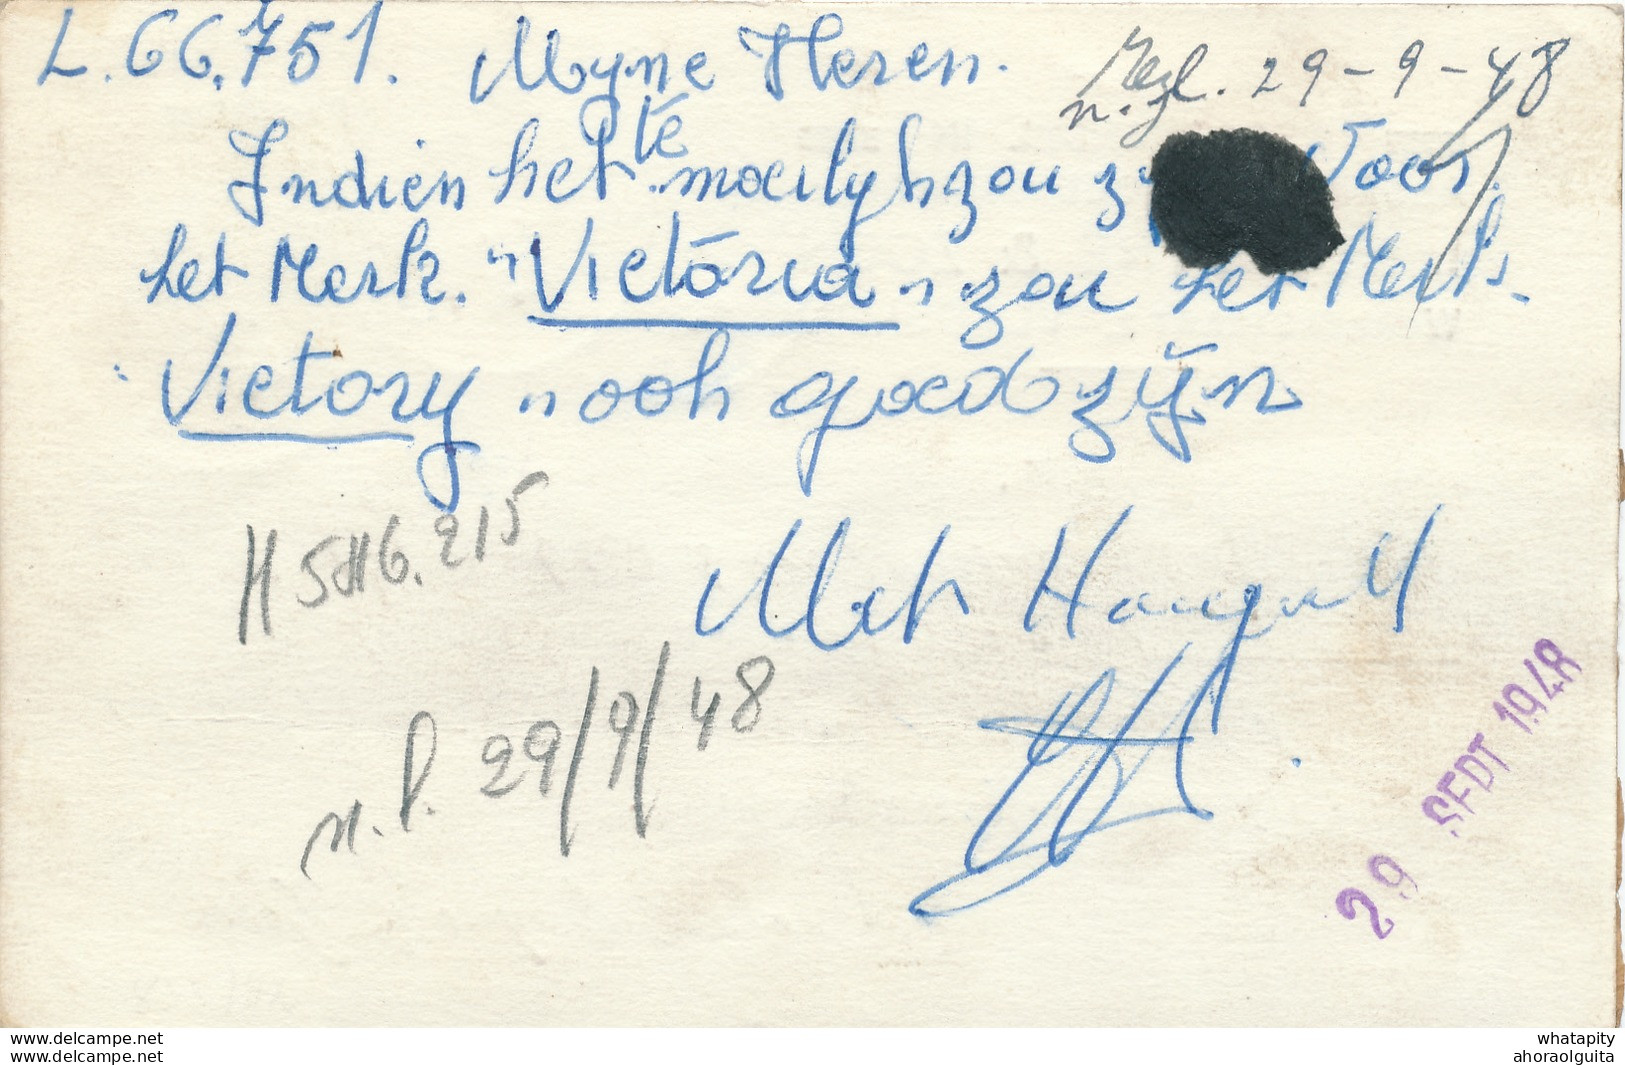 L.66.751. Myne Heren.
29-9-48
Indien het te moeilyk zou Voor
het Merk. "Victoria" zou het Merk
Victory" ook goed zijn
H 546.215
n.p. 29/9/48
29 SEPT 1948
whatapity
ahoraolguita
www.delcampe.net
www.delcampe.net